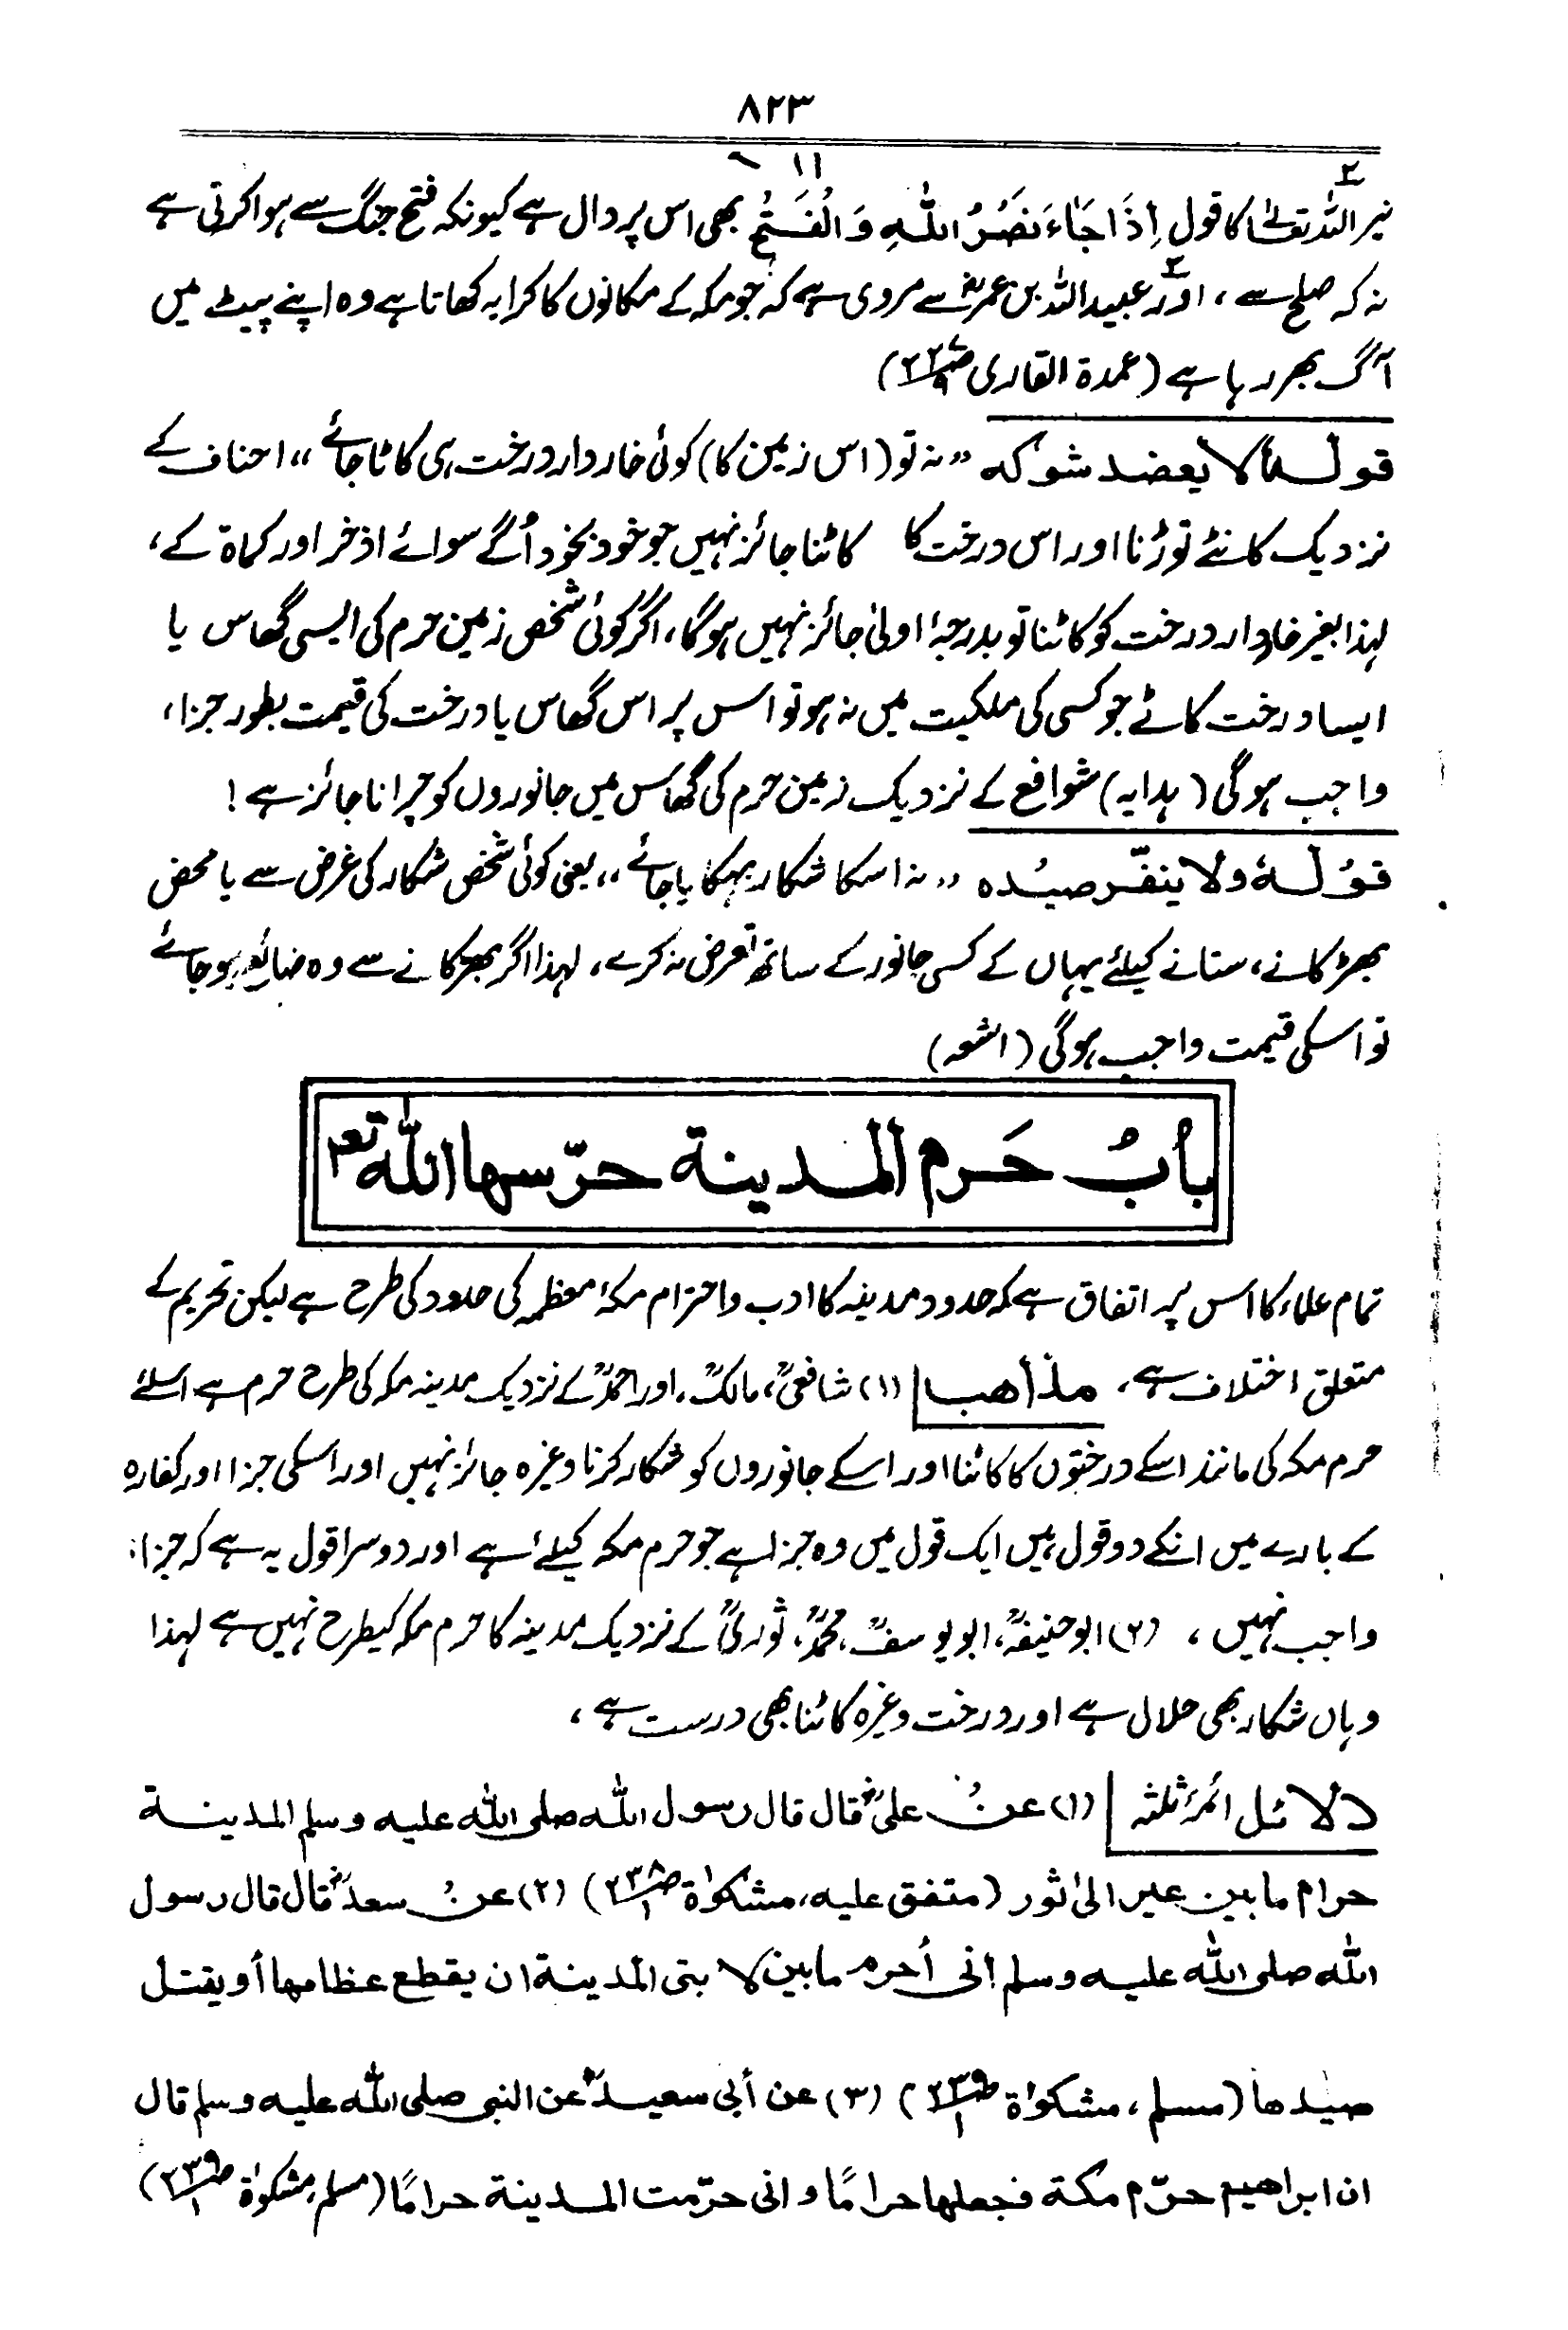 ۸۲۳
نیز اللہ تعالےٰ کا قول اِذَا جَاءَ نَصْرُ اللّٰهِ وَالْفَتْحُ بھی اس پر دال ہے کیونکہ فتح جنگ سے ہوا کرتی ہے
نہ کہ صلح سے ، اور عبید اللہ بن عمرؓ سے مروی ہے کہ جو مکہ کے مکانوں کا کرایہ کھاتا ہے وہ اپنے پیٹ میں
آگ بھر رہا ہے (عمدۃ القاری)
قولہٗ لا یعضد شوکہ ”نہ تو (اس زمین کا) کوئی خاردار درخت ہی کاٹا جائے“ احناف کے
نزدیک کانٹے توڑنا اور اس درخت کا کاٹنا جائز نہیں جو خود بخود اُگے سوائے اذخر اور کماۃ کے ،
لہذا بغیر خاردار درخت کو کاٹنا تو بدرجۂ اولیٰ جائز نہیں ہوگا ، اگر کوئی شخص زمین حرم کی ایسی گھاس یا
ایسا درخت کاٹے جو کسی کی ملکیت میں نہ ہو تو اس پر اس گھاس یا درخت کی قیمت بطور جزاء
واجب ہوگی (ہدایہ) شوافع کے نزدیک زمین حرم کی گھاس میں جانوروں کو چرانا جائز ہے !
قولہٗ ولا ینفّر صیدہ ”نہ اسکا شکار بہکایا جائے“ یعنی کوئی شخص شکار کی غرض سے یا محض
بھڑکانے ، ستانے کیلئے یہاں کے کسی جانور کے ساتھ تعرض نہ کرے ، لہذا اگر بھڑکانے سے وہ ضائع ہو جائے
تو اسکی قیمت واجب ہوگی (اشعہ)
بابُ حَرم المدینة حرّسها اللّٰه تعم
تمام علماء کا اس پر اتفاق ہے کہ حدود مدینہ کا ادب واحترام مکۂ معظمہ کی حدود کی طرح ہے لیکن تحریم کے
متعلق اختلاف ہے ، مذاهب (۱) شافعیؒ ، مالکؒ ، اور احمدؒ کے نزدیک مدینہ مکہ کی طرح حرم ہے اسلئے
حرم مکہ کی مانند اسکے درختوں کا کاٹنا اور اسکے جانوروں کو شکار کرنا وغیرہ جائز نہیں اور اسکی جزا اور کفارہ
کے بارے میں انکے دو قول ہیں ایک قول میں وہ جزا ہے جو حرم مکہ کیلئے ہے اور دوسرا قول یہ ہے کہ جزاء
واجب نہیں ، (۲) ابو حنیفہؒ ، ابو یوسفؒ ، محمدؒ ، ثوریؒ کے نزدیک مدینہ کا حرم مکہ کیطرح نہیں ہے لہذا
وہاں شکار بھی حلال ہے اور درخت وغیرہ کاٹنا بھی درست ہے ،
دلائل ائمۂ ثلثہ (۱) عن علیؓ قال قال رسول اللّٰه صلى اللّٰه عليه وسلم المدينة
حرام ما بين عير الىٰ ثور (متفق عليه، مشكوٰة ص۲۳۸) (۲) عن سعدؓ قال قال رسول
اللّٰه صلى اللّٰه عليه وسلم انى أحرم ما بين لا بتى المدينة ان يقطع عظامها أو يقتل
صيدها (مسلم ، مشكوٰة ص۲۳۹) (۳) عن أبى سعيدؓ عن النبى صلى اللّٰه عليه وسلم قال
ان ابراهيم حرّم مكة فجعلها حرامًا و انى حرّمت المدينة حرامًا (مسلم، مشكوٰة ص۲۳۹)